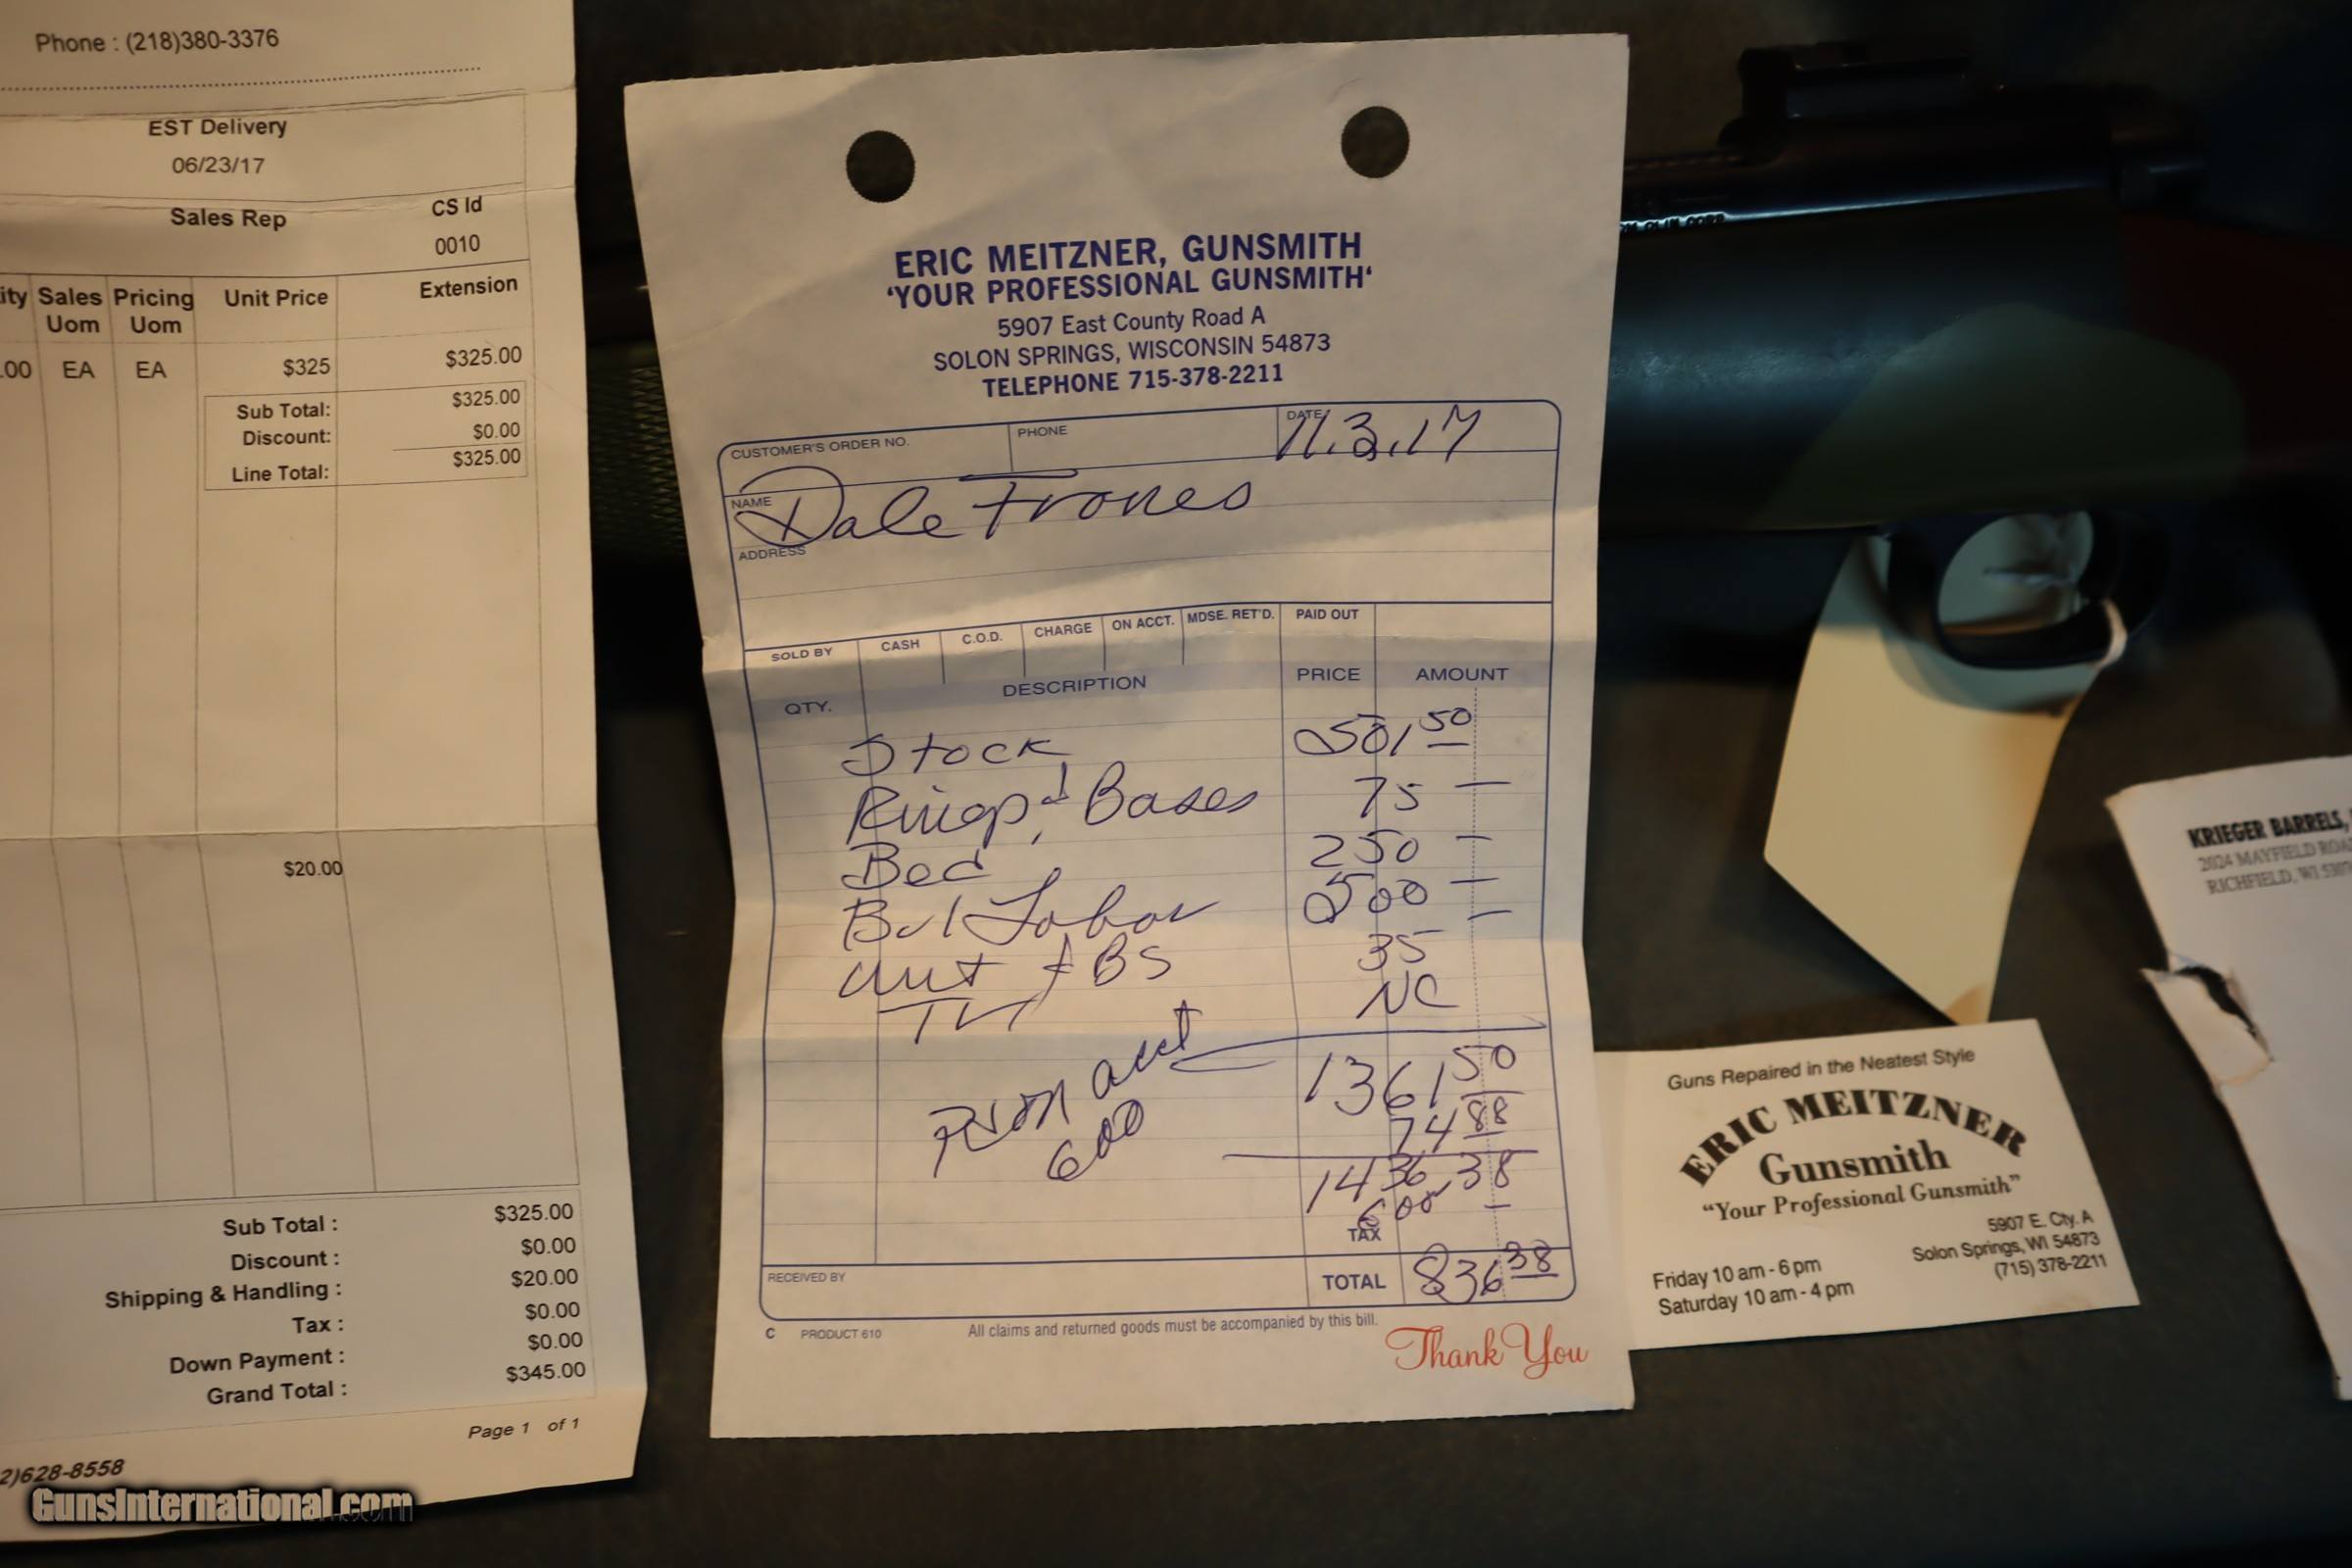 Phone : (218)380-3376
EST Delivery
06/23/17
Sales Rep
CS Id
0010
ity Sales Uom Pricing Uom Unit Price Extension
.00 EA EA $325 $325.00
Sub Total: $325.00
Discount: $0.00
Line Total: $325.00
$20.00
Sub Total : $325.00
Discount : $0.00
Shipping & Handling : $20.00
Tax : $0.00
Down Payment : $0.00
Grand Total : $345.00
Page 1 of 1
2)628-8558
GunsInternational.com
ERIC MEITZNER, GUNSMITH
'YOUR PROFESSIONAL GUNSMITH'
5907 East County Road A
SOLON SPRINGS, WISCONSIN 54873
TELEPHONE 715-378-2211
CUSTOMER'S ORDER NO. PHONE DATE 11.3.17
NAME Dale Frones
ADDRESS
SOLD BY CASH C.O.D. CHARGE ON ACCT. MDSE. RET'D. PAID OUT
QTY. DESCRIPTION PRICE AMOUNT
Stock 501 50
Rings & Bases 75 —
Bed 250 —
Brl Labor 500 —
35 —
NC
1361 50
74 88
600
1436.38
600 —
TAX
RECEIVED BY
TOTAL 836 38
C PRODUCT 610
All claims and returned goods must be accompanied by this bill.
Thank You
Guns Repaired in the Neatest Style
ERIC MEITZNER
Gunsmith
"Your Professional Gunsmith"
5907 E. Cty. A
Solon Springs, WI 54873
(715) 378-2211
Friday 10 am - 6 pm
Saturday 10 am - 4 pm
KRIEGER BARRELS,
2024 MAYFIELD ROA
RICHFIELD, WI 530